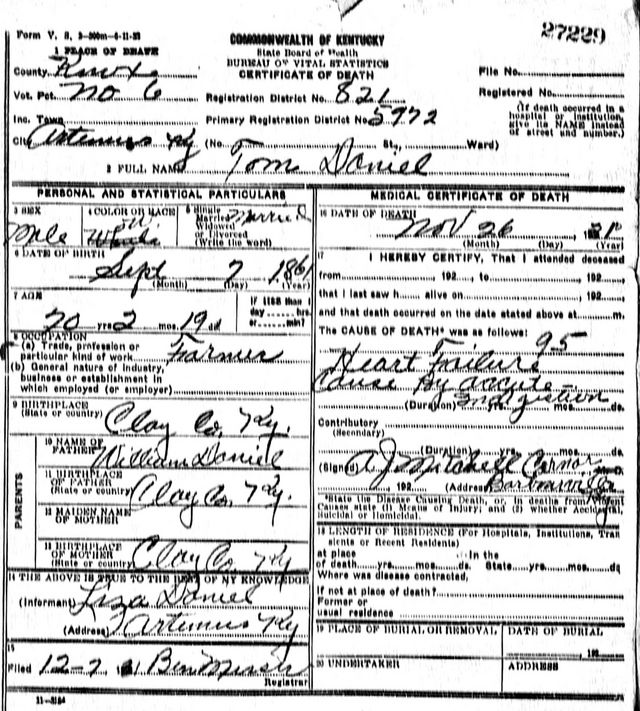 Form V. S. 3-300m-6-11-23
27229
COMMONWEALTH OF KENTUCKY
State Board of Health
BUREAU OF VITAL STATISTICS
CERTIFICATE OF DEATH
1 PLACE OF DEATH
County Knox
Vot. Pct. No 6
Inc. Town
City Artemus Ky
File No.
Registered No.
Registration District No. 821
Primary Registration District No. 5972
(If death occurred in a
hospital or institution,
give its NAME instead
of street and number.)
(No. St., Ward)
2 FULL NAME Tom Daniel
PERSONAL AND STATISTICAL PARTICULARS
3 SEX
Male
4 COLOR OR RACE
White
5 Single
Married
Widowed
or Divorced
(Write the word)
Married
6 DATE OF BIRTH
Sept 7 1861
(Month) (Day) (Year)
7 AGE
70 yrs 2 mos. 19 d
If LESS than 1
day hrs.
or min?
8 OCCUPATION
(a) Trade, profession or
particular kind of work Farmer
(b) General nature of industry,
business or establishment in
which employed (or employer)
9 BIRTHPLACE
(State or country)
Clay Co, Ky.
PARENTS
10 NAME OF
FATHER
William Daniel
11 BIRTHPLACE
OF FATHER
(State or country)
Clay Co, Ky.
12 MAIDEN NAME
OF MOTHER
13 BIRTHPLACE
OF MOTHER
(State or country)
Clay Co Ky
14 THE ABOVE IS TRUE TO THE BEST OF MY KNOWLEDGE
(Informant) Liza Daniel
(Address) Artemus Ky
15
Filed 12-7
Registrar
11-3184
MEDICAL CERTIFICATE OF DEATH
16 DATE OF DEATH
Nov 26 31
(Month) (Day) (Year)
17 I HEREBY CERTIFY, That I attended deceased
from 192 , to 192
that I last saw h alive on 192
and that death occurred on the date stated above at m.
The CAUSE OF DEATH* was as follows:
95
Heart Failure
Cause By accute
indigistion
(Duration) yrs. mos. ds.
Contributory
(Secondary)
(Duration) yrs. mos. ds.
(Signed) A J Mitchell Cornor
192 (Address) Barbourville
*State the Disease Causing Death, or, in deaths from Violent
Causes state (1) Means of Injury; and (2) whether Accidental,
Suicidal or Homicidal.
18 LENGTH OF RESIDENCE (For Hospitals, Institutions, Tran
sients or Recent Residents)
at place In the
of death yrs. mos. ds. State yrs. mos. ds
Where was disease contracted,
if not at place of death?
Former or
usual residence
19 PLACE OF BURIAL OR REMOVAL
DATE OF BURIAL
192
20 UNDERTAKER
ADDRESS